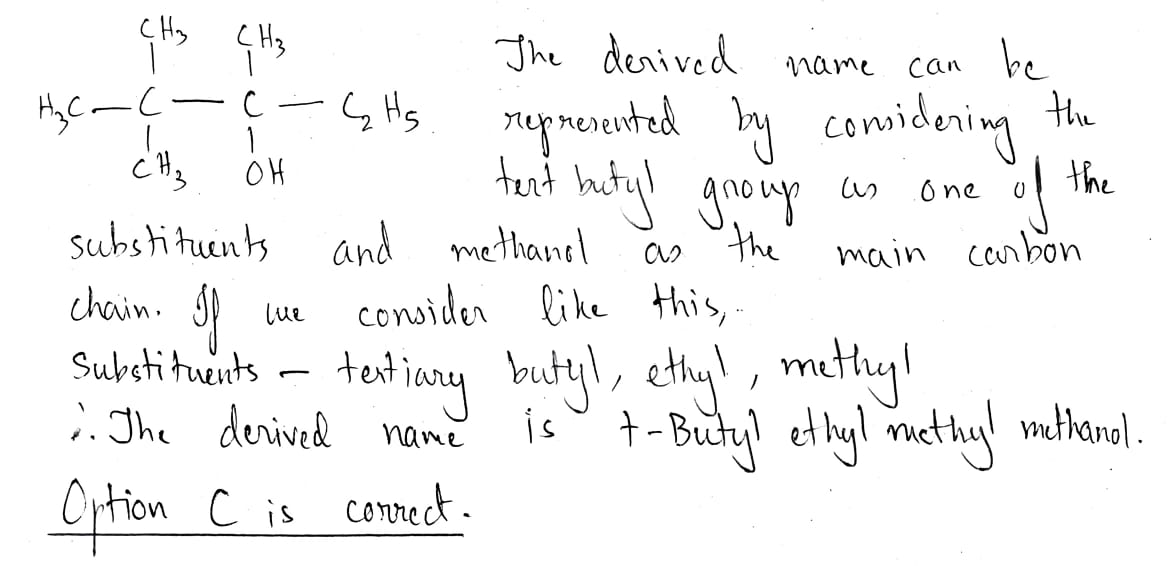 CH3 CH3
H3C—C—C—C2H5
CH3 OH
The derived name can be
represented by considering the
tert butyl group as one of the
substituents and methanol as the main carbon
chain. If we consider like this,
Substituents – tertiary butyl, ethyl, methyl
∴ The derived name is t-Butyl ethyl methyl methanol.
Option C is correct.